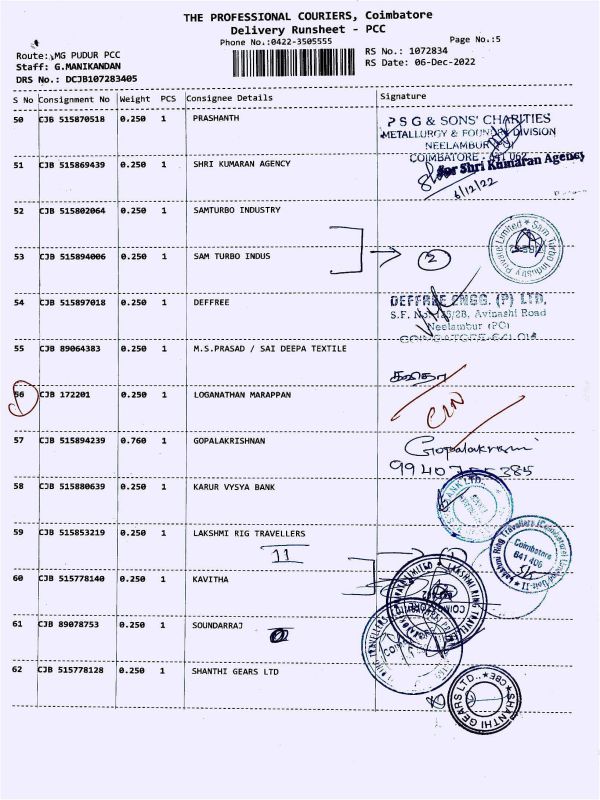 THE PROFESSIONAL COURIERS, Coimbatore
Delivery Runsheet - PCC
Phone No.:0422-3505555
Page No.:5
Route: MG PUDUR PCC
RS No.: 1072834
Staff: G.MANIKANDAN
RS Date: 06-Dec-2022
DRS No.: DCJB107283405
S No Consignment No Weight PCS Consignee Details Signature
50 CJB 515870518 0.250 1 PRASHANTH
P S G & SONS' CHARITIES
METALLURGY & FOUNDRY DIVISION
NEELAMBUR
COIMBATORE - 641 062
51 CJB 515869439 0.250 1 SHRI KUMARAN AGENCY
for Shri Kumaran Agency
6/12/22
52 CJB 515802064 0.250 1 SAMTURBO INDUSTRY
53 CJB 515894006 0.250 1 SAM TURBO INDUS
2
Sam Turbo Industry Private Limited
54 CJB 515897018 0.250 1 DEFFREE
DEFFREE ENGG. (P) LTD,
S.F. No. Avinashi Road
Neelambur (PO)
COIMBATORE-641 014
55 CJB 89064383 0.250 1 M.S.PRASAD / SAI DEEPA TEXTILE
56 CJB 172201 0.250 1 LOGANATHAN MARAPPAN
CLN
57 CJB 515894239 0.760 1 GOPALAKRISHNAN
Gopalakrisni
58 CJB 515880639 0.250 1 KARUR VYSYA BANK
BANK LTD.
59 CJB 515853219 0.250 1 LAKSHMI RIG TRAVELLERS
11
Lakshmi Ring Travellers (Coimbatore) Limited Unit-II
Coimbatore
641 406
60 CJB 515778140 0.250 1 KAVITHA
LAKSHMI RING TRAVELLERS
61 CJB 89078753 0.250 1 SOUNDARRAJ
62 CJB 515778128 0.250 1 SHANTHI GEARS LTD
SHANTHI GEARS LTD., CBE